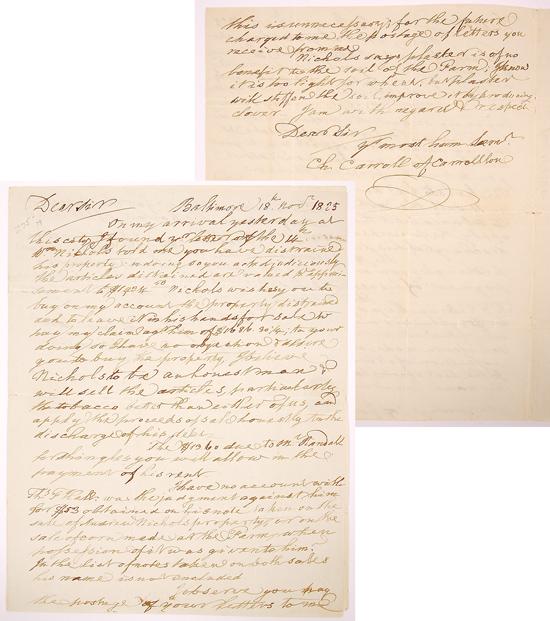 Baltimore 18th Novr 1825
Dear Sir
On my arrival yesterday at
this city I found yr letter of the 14th
Wm Nichols told me you have distrained
his property, in doing so you acted judiciously
the articles distrained are valued
to $1924 Nichols wishes you to
buy on my account the property distrained
and to leave it in his hands for sale to
pay my claim against him of
I have no objection & desire
you to buy the property, I believe
Nichols to be an honest man &
will sell the articles, particularly
the tobacco better than either of us, and
apply the proceeds of sale honestly to the
discharge of his debt.
The $13.60 due to Mr Randall
for shingles you will allow in the
payment of his rent
I have no account with
Thos G Hall: was the judgment against him
for $753 obtained on his note taken on the
sale of Andrew Nichols property or on the
sale of corn made at the Farm when
possession of it was given to him;
In the list of notes taken on both sales
his name is not included
I observe you pay
the postage of your letters to me
this is unnecessary; for the future
charge to me the postage of letters you
receive from me
Nichols says plaster is of no
benefit to the soil of the Farm, I know
it is too light for wheat, but plaster
will stiffen the soil, improve it by producing
clover I am with regard & respect
Dear Sir
Yr most hum Servt
Ch. Carroll of Carrollton